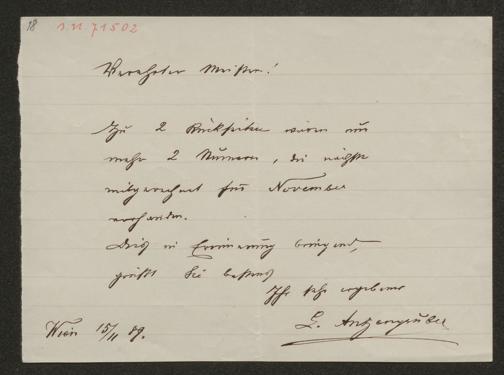 18
J.N. 71502
Verehrter Meister!
Zu 2 Rückseiten wären nur
mehr 2 Numern, die nächste
mitgerechnet für November
vorhanden.
Dies in Erinnerung bringend,
grüßt Sie bestens
Ihr sehr ergebener
L. Anzengruber
Wien 15/11 89.